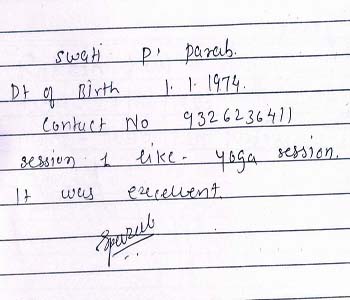 Swati P. Parab.
Dt of Birth 1.1.1974.
Contact No 9326236411
session I like - yoga session.
It was excellent.
Sparab